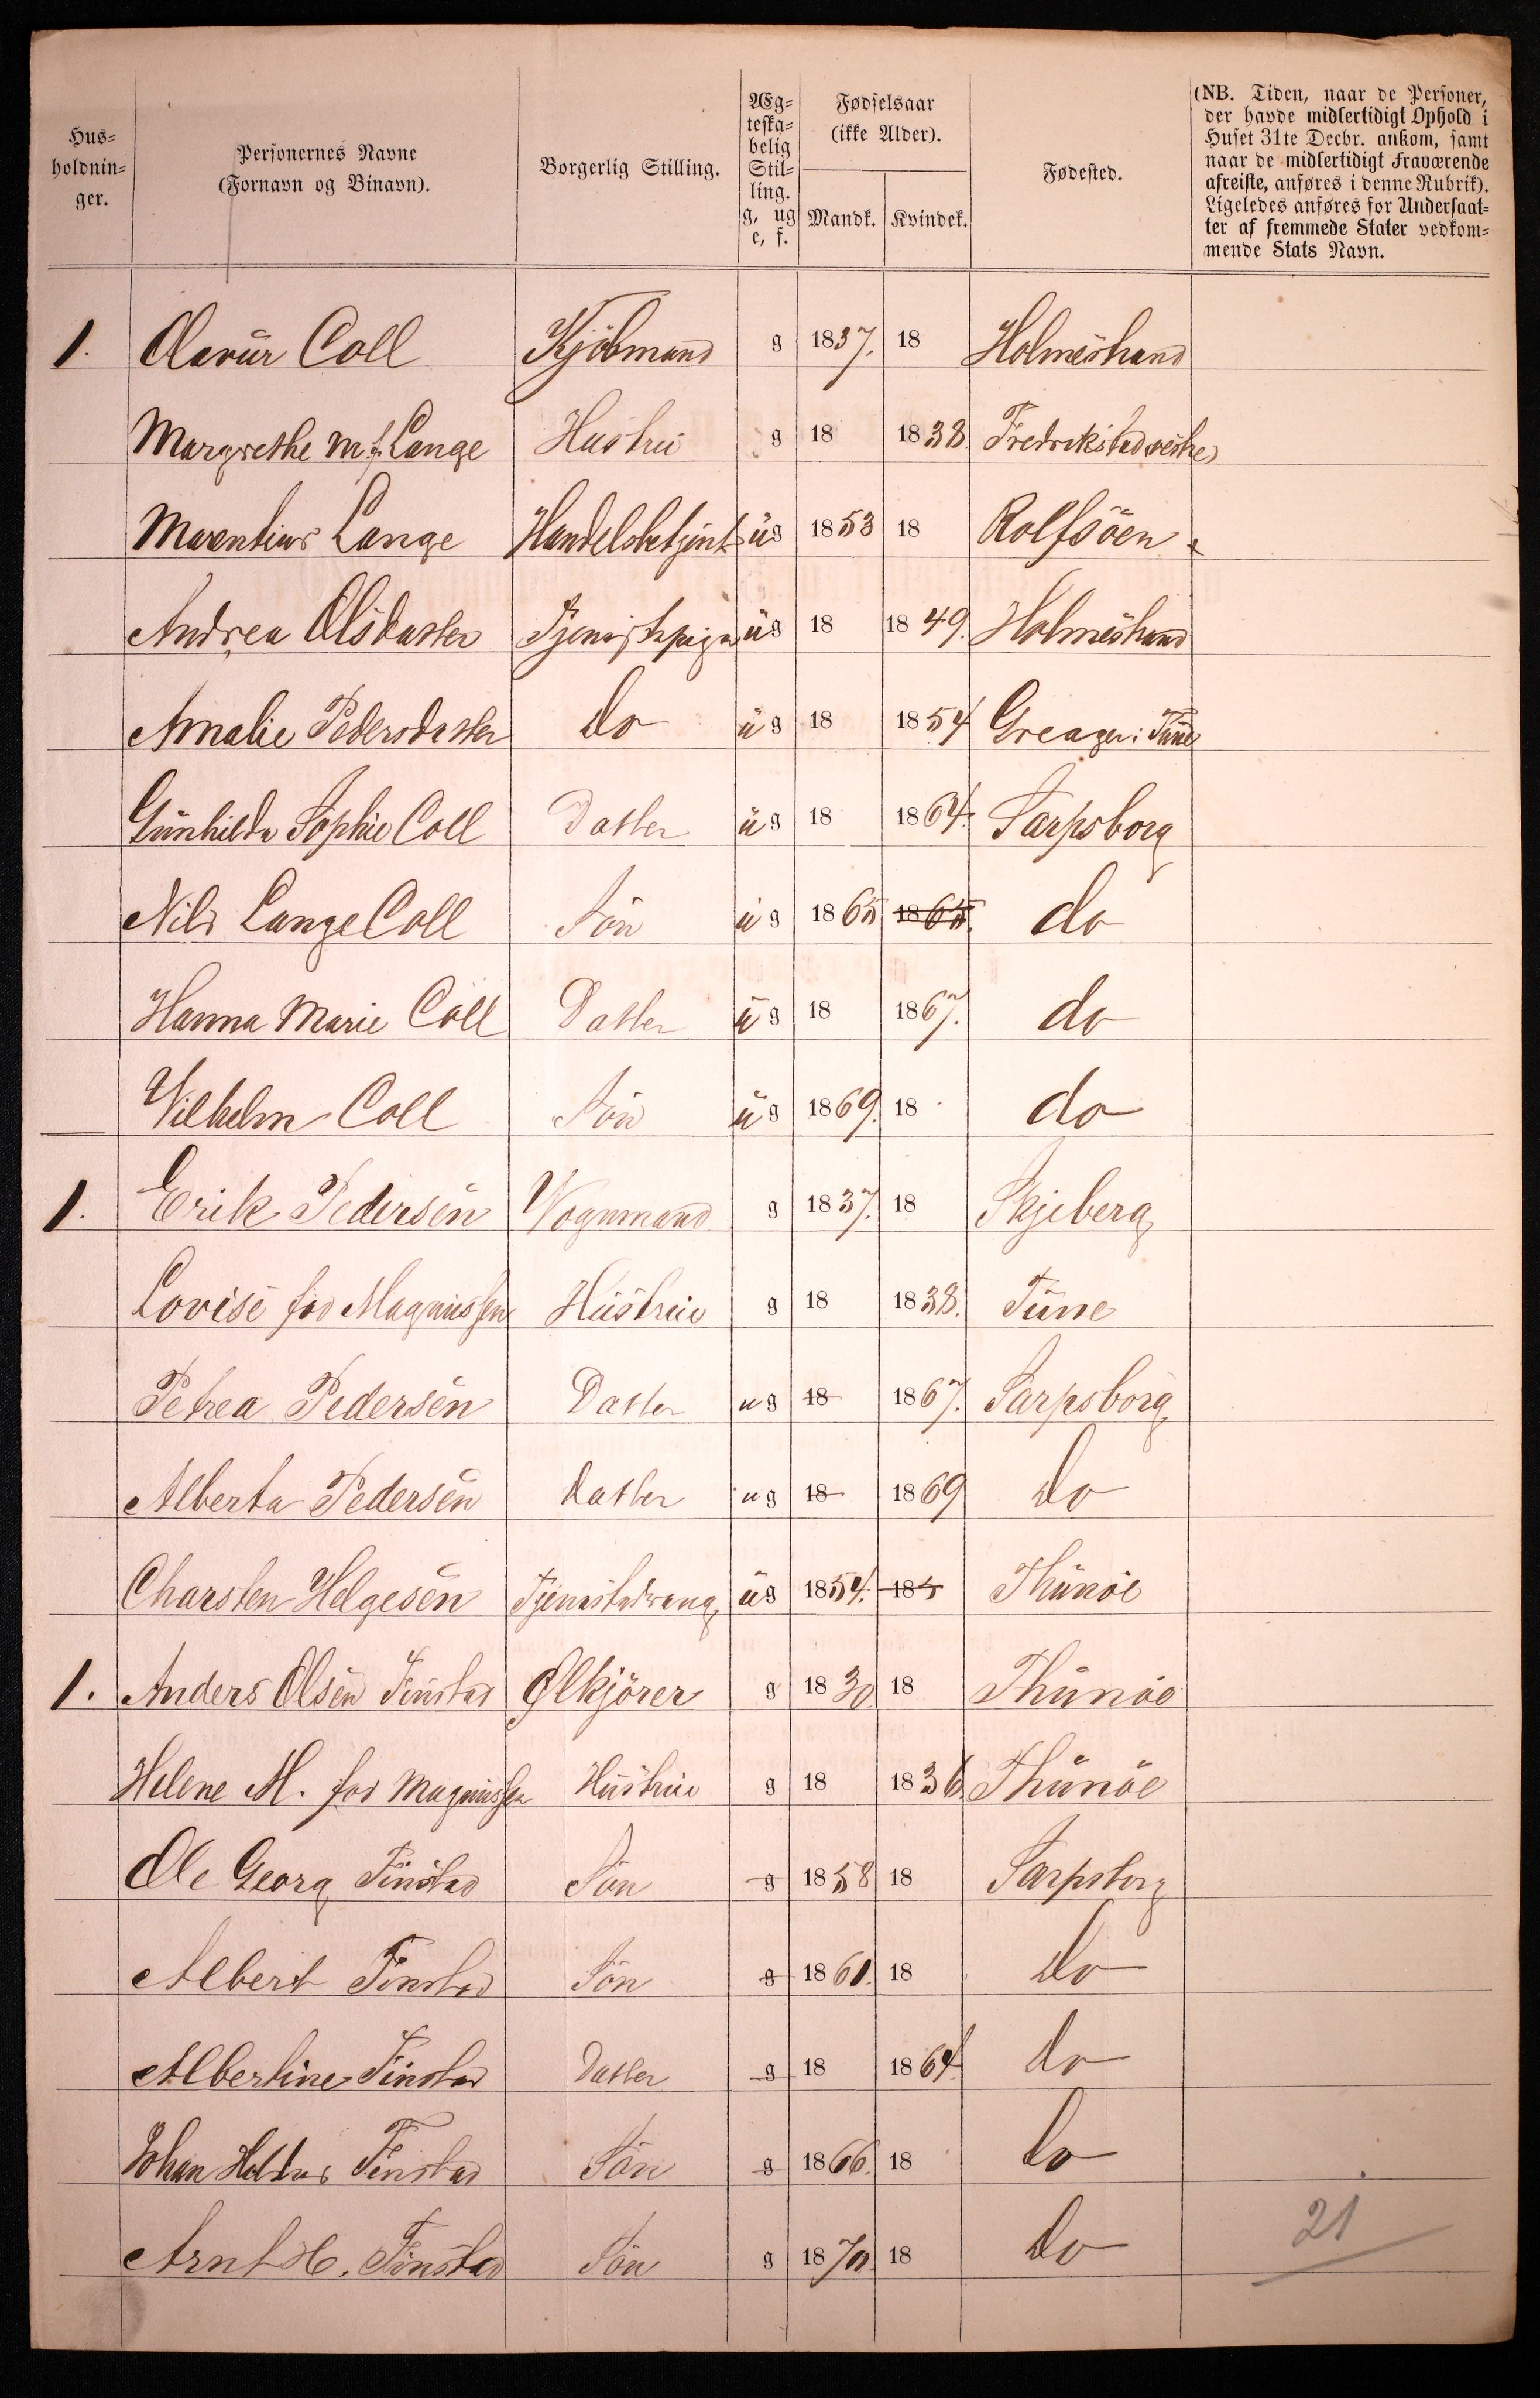 Hus-
holdnin-
ger.
Personernes Navne
(Fornavn og Binavn).
Borgerlig Stilling.
Æg-
teska-
belig
Stil-
ling.
g, ug
e, f.
Fødselsaar
(ikke Alder).
Mandk. Kvindek.
Fødested.
(NB. Tiden, naar de Personer,
der havde midlertidigt Ophold i
Huset 31te Decbr. ankom, samt
naar de midlertidigt Fraværende
afreiste, anføres i denne Rubrik).
Ligeledes anføres for Undersaat-
ter af fremmede Stater vedkom-
mende Stats Navn.
1. Olavür Coll Kjöbmand g 1837. 18 Holmestrand
Margrethe M. f. Lange Hustru g 18 1838 Fredrikstad vestre
Marentius Lange Handelsbetjent üg 1853 18 Rolfsöen
Andrea Olsdatter Tjenestepige üg 18 1849. Holmestrand
Amalie Pedersdatter do üg 18 1854 Greager i Tüne
Günhilda Sophie Coll Datter üg 18 1864. Sarpsborg
Nils Lange Coll Sön üg 1865 1865. do
Hanna Marie Coll Datter üg 18 1867. do
Vilhelm Coll Sön üg 1869. 18 do
1. Erik Pedersen Vognmand g 1837. 18 Skjeberg
Lovise fød Magnussen Hüstrue g 18 1838. Tüne
Petrea Pedersen Datter ug 18 1867. Sarpsborg
Alberta Pedersen Datter ug 18 1869 do
Charsten Helgesen Tjenestedreng üg 1854. 185 Thünöe
1. Anders Olsen Finstad Ølkjörer g 1830 18 Thünöe
Helene M. fød Magnussen Hüstrue g 18 1836 Thünöe
Ole Georg Finstad Sön g 1858 18 Sarpsborg
Albert Finstad Sön g 1861. 18 do
Albertine Finstad Datter g 18 1864 do
Johan Finstad Sön g 1866. 18 do
Arnt H. Finstad Sön g 1870. 18 do
21